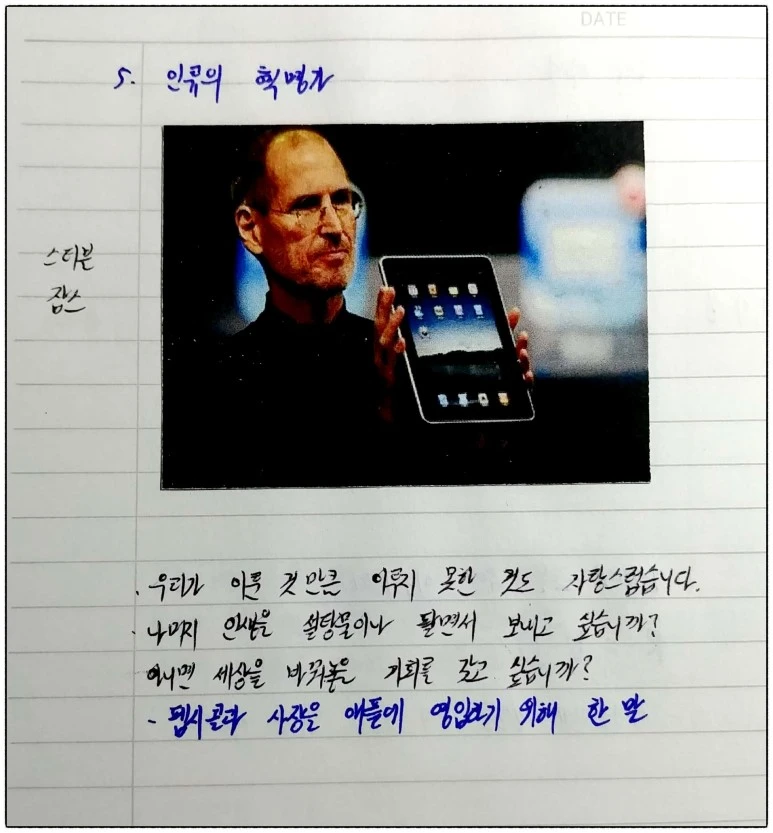 DATE
5. 인류의 혁명가
스티븐
잡스
. 우리가 이룬 것 만큼 이루지 못한 것도 자랑스럽습니다.
. 나머지 인생을 설탕물이나 팔면서 보내고 싶습니까?
아니면 세상을 바꿔놓을 기회를 갖고 싶습니까?
- 펩시콜라 사장을 애플에 영입하기 위해 한 말